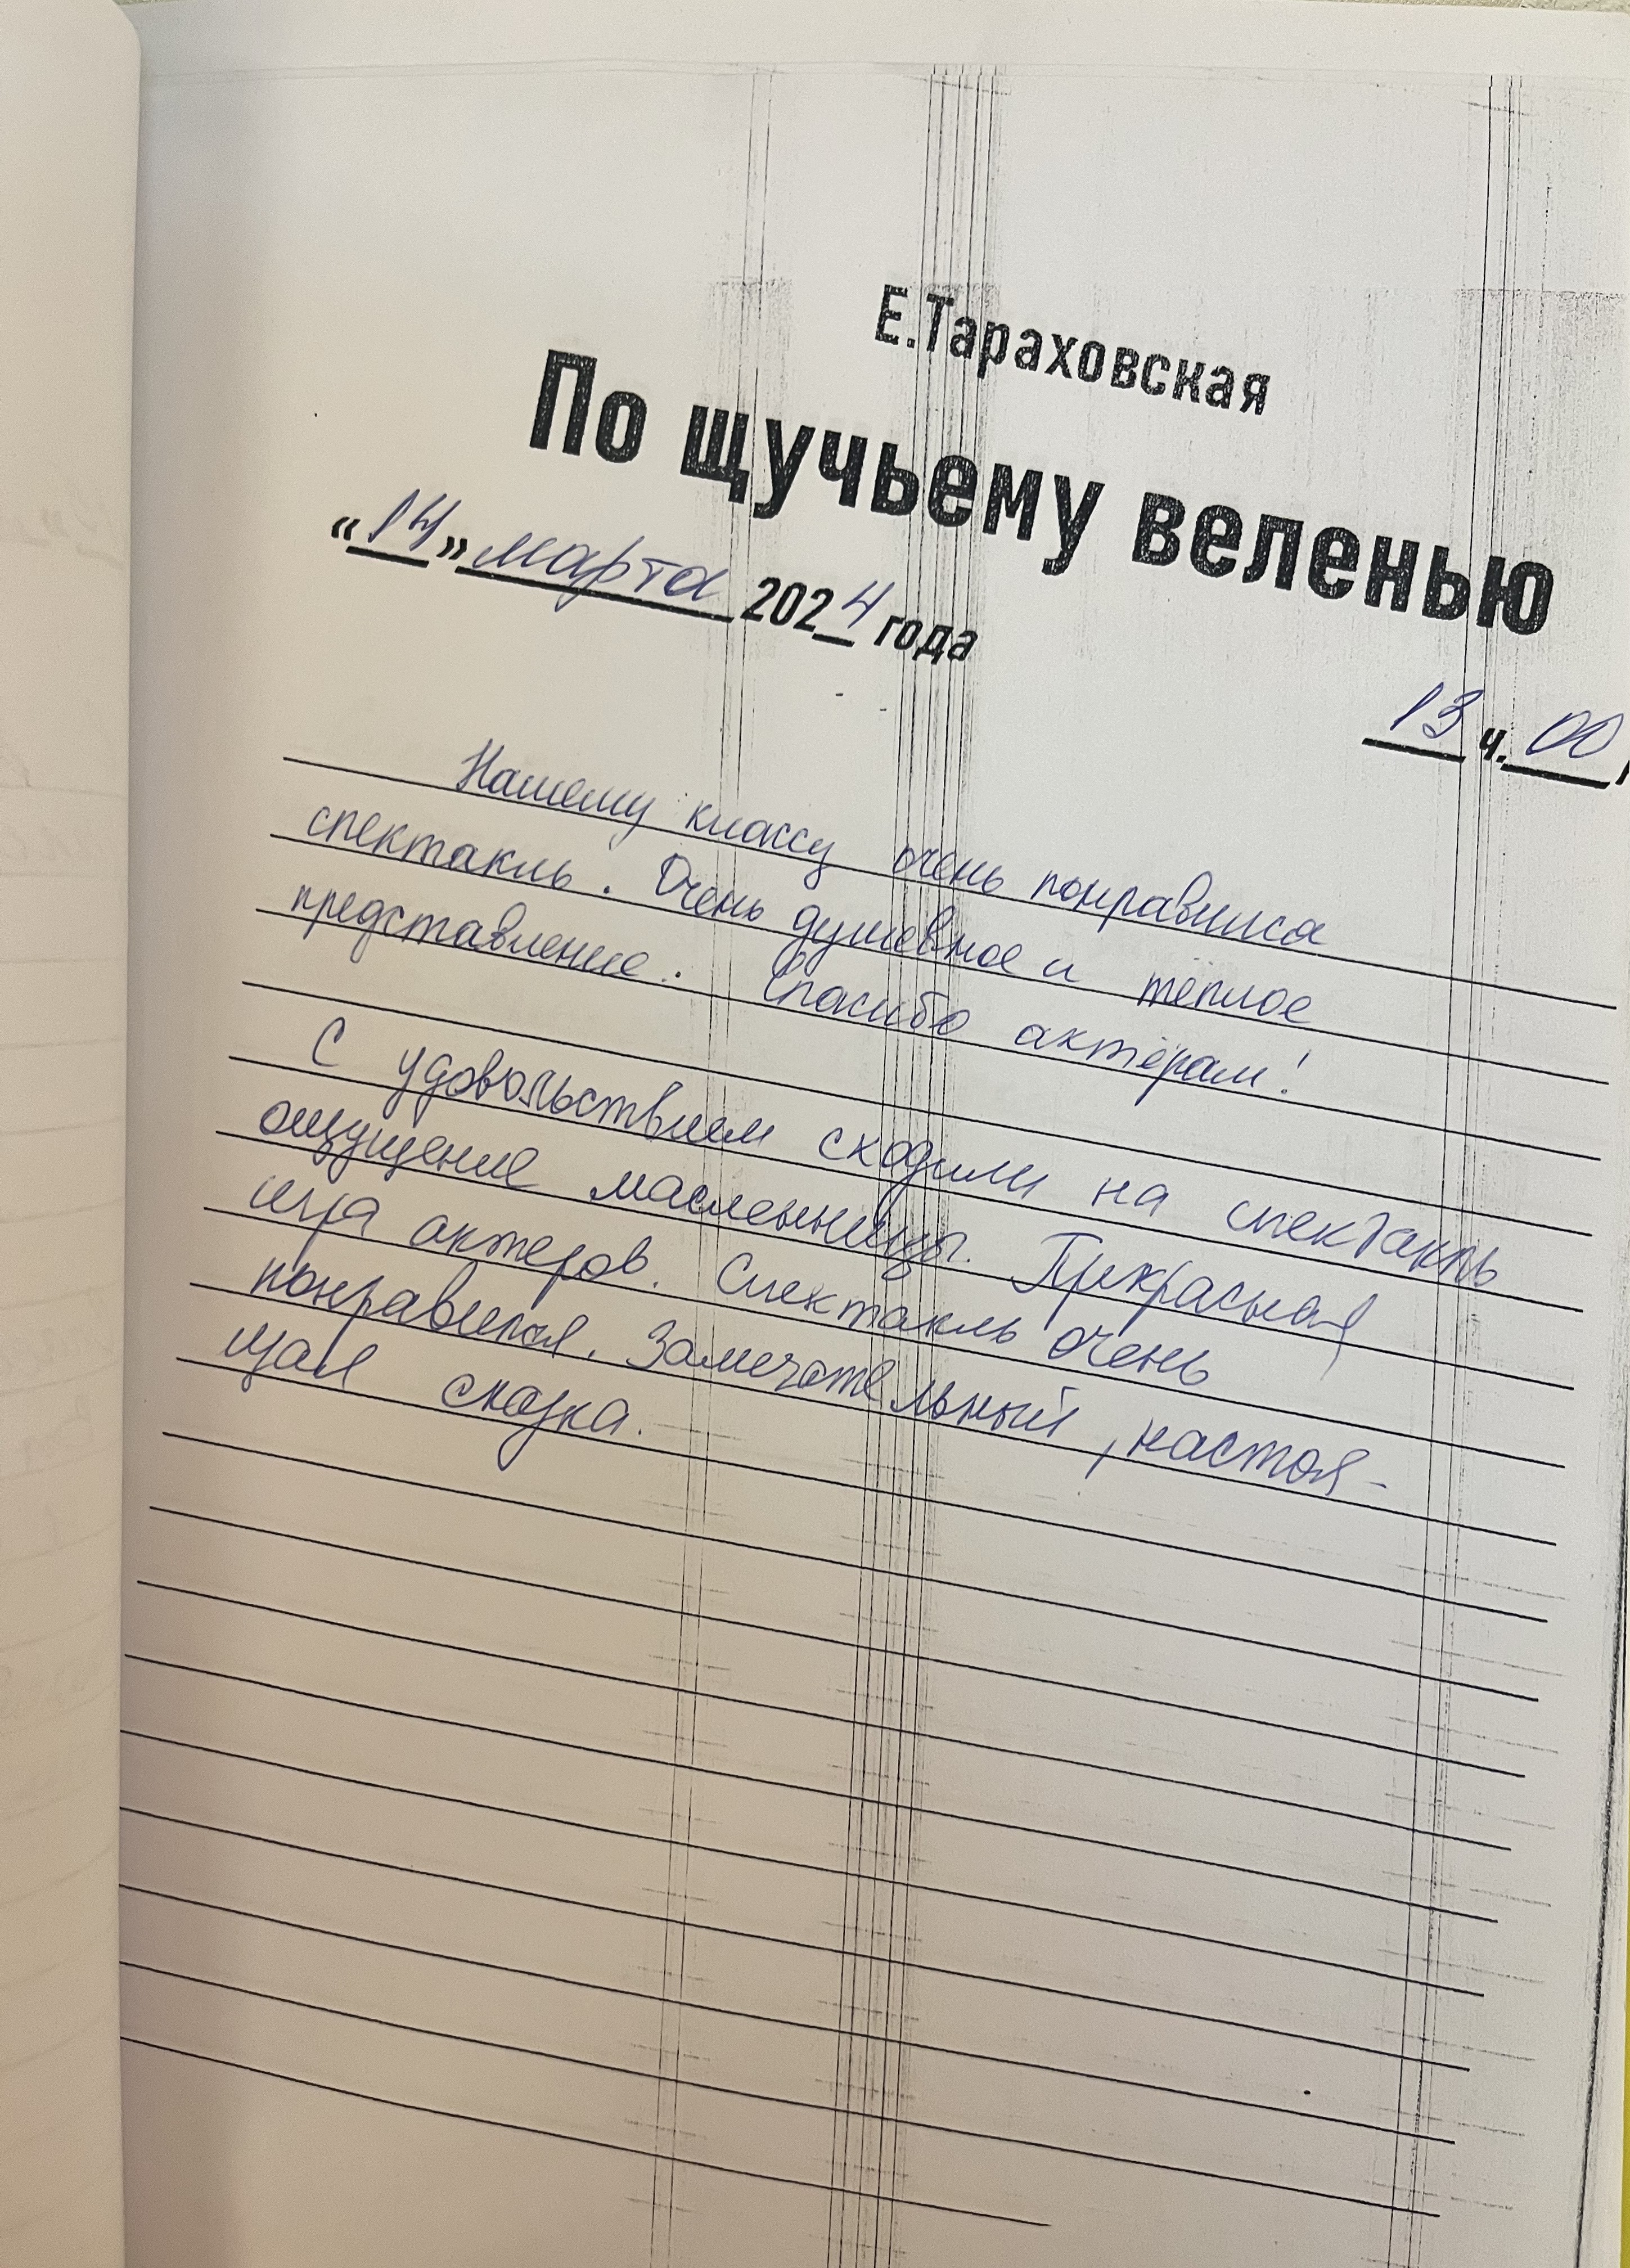 Е.Тараховская
По щучьему веленью
«14» марта 2024 года
13 ч. 00
Нашему классу очень понравился
спектакль. Очень душевное и тёплое
представление. Спасибо актёрам!
С удовольствием сходили на спектакль
ощущение масленницы. Прекрасная
игра актеров. Спектакль очень
понравился. Замечательный, настоя-
щая сказка.